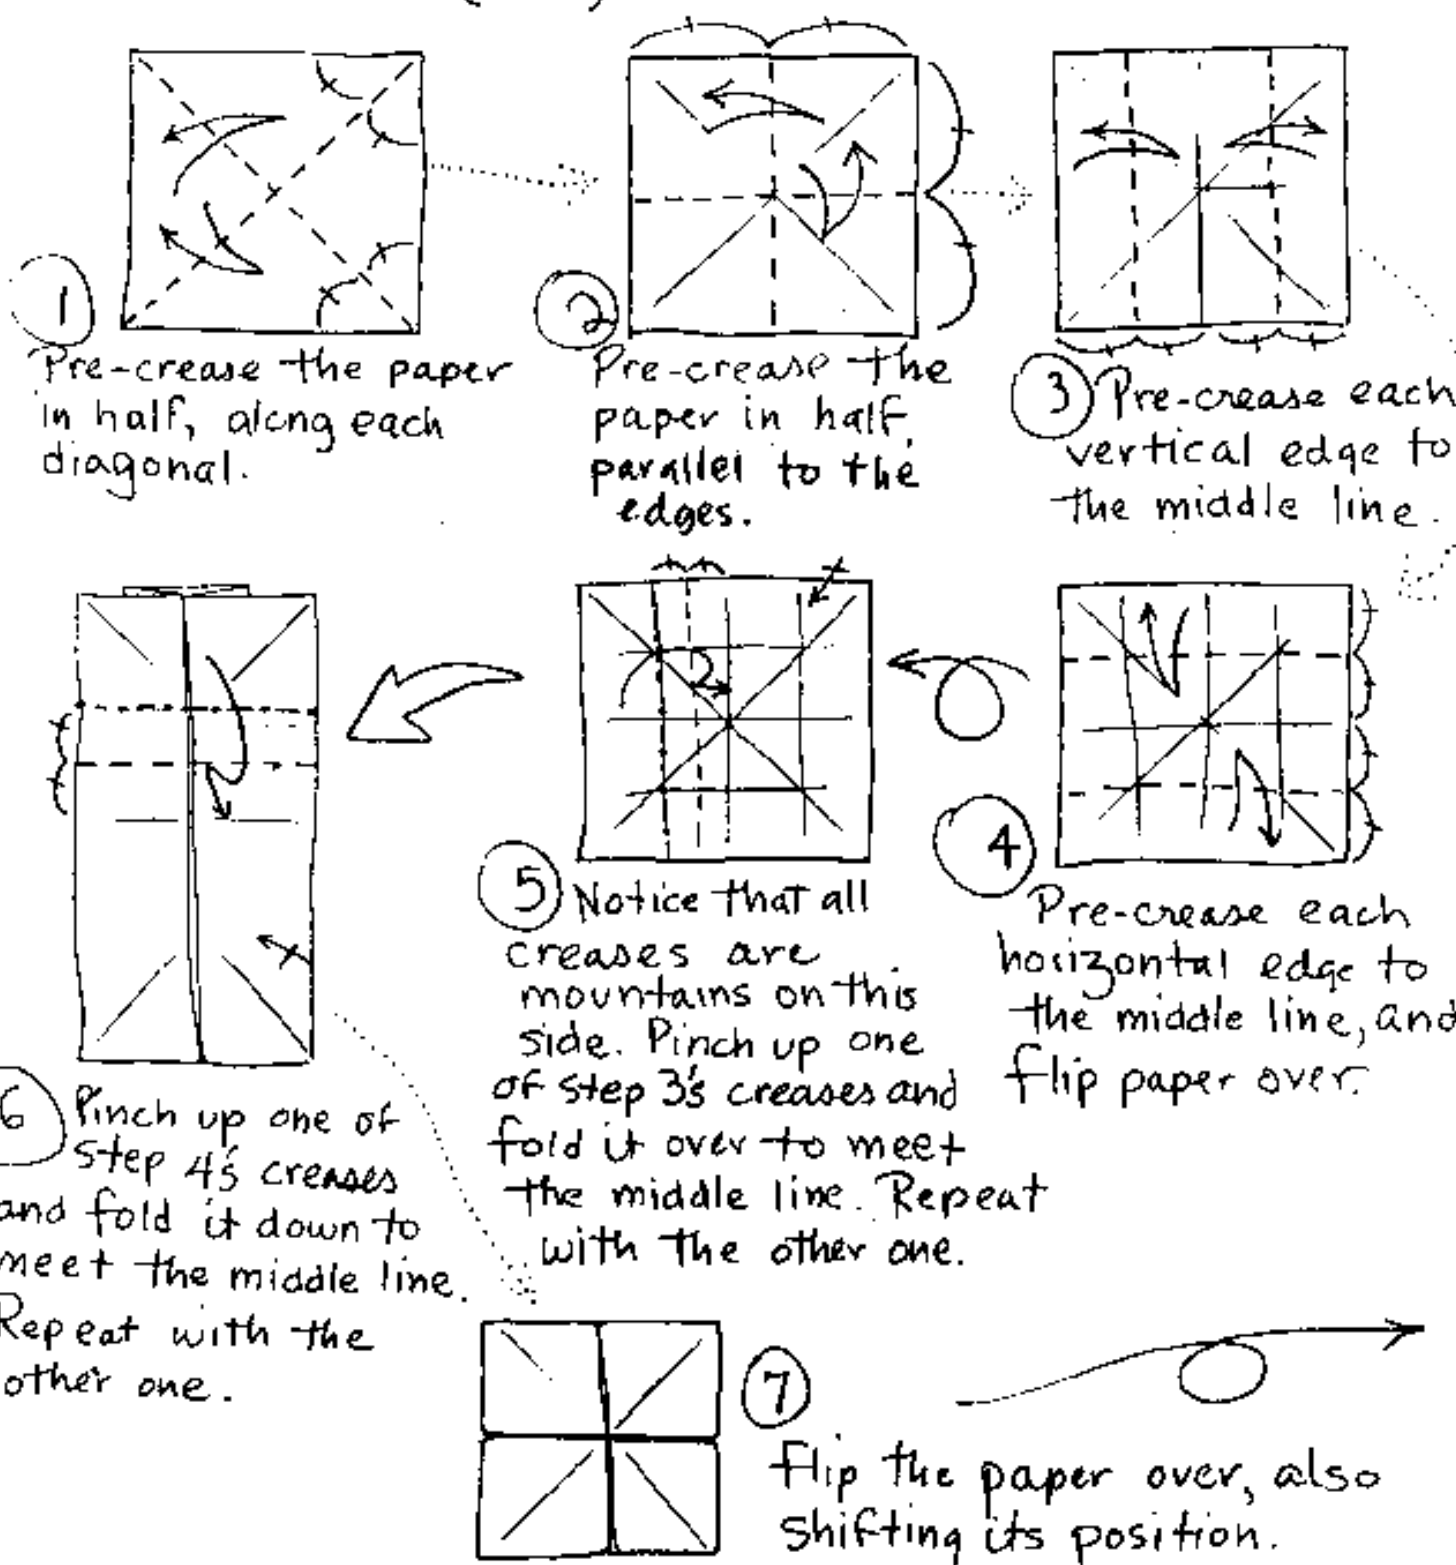 1
Pre-crease the paper
in half, along each
diagonal.
2
Pre-crease the
paper in half,
parallel to the
edges.
3 Pre-crease each
vertical edge to
the middle line.
4
Pre-crease each
horizontal edge to
the middle line, and
flip paper over.
5 Notice that all
creases are
mountains on this
side. Pinch up one
of step 3's creases and
fold it over to meet
the middle line. Repeat
with the other one.
6 Pinch up one of
step 4's creases
and fold it down to
meet the middle line.
Repeat with the
other one.
7
Flip the paper over, also
shifting its position.